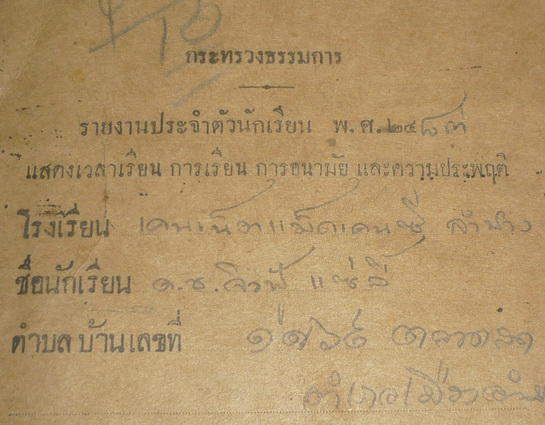 กระทรวงธรรมการ
รายงานประจำตัวนักเรียน พ.ศ.๒๔๘๓
แสดงเวลาเรียน การเรียน การอนามัย และความประพฤติ
โรงเรียน เคนเน็ตแม็คเคนซี ลำปาง
ชื่อนักเรียน ด.ช. แซ่ลี้
ตำบล บ้านเลขที่
อำเภอเมือง